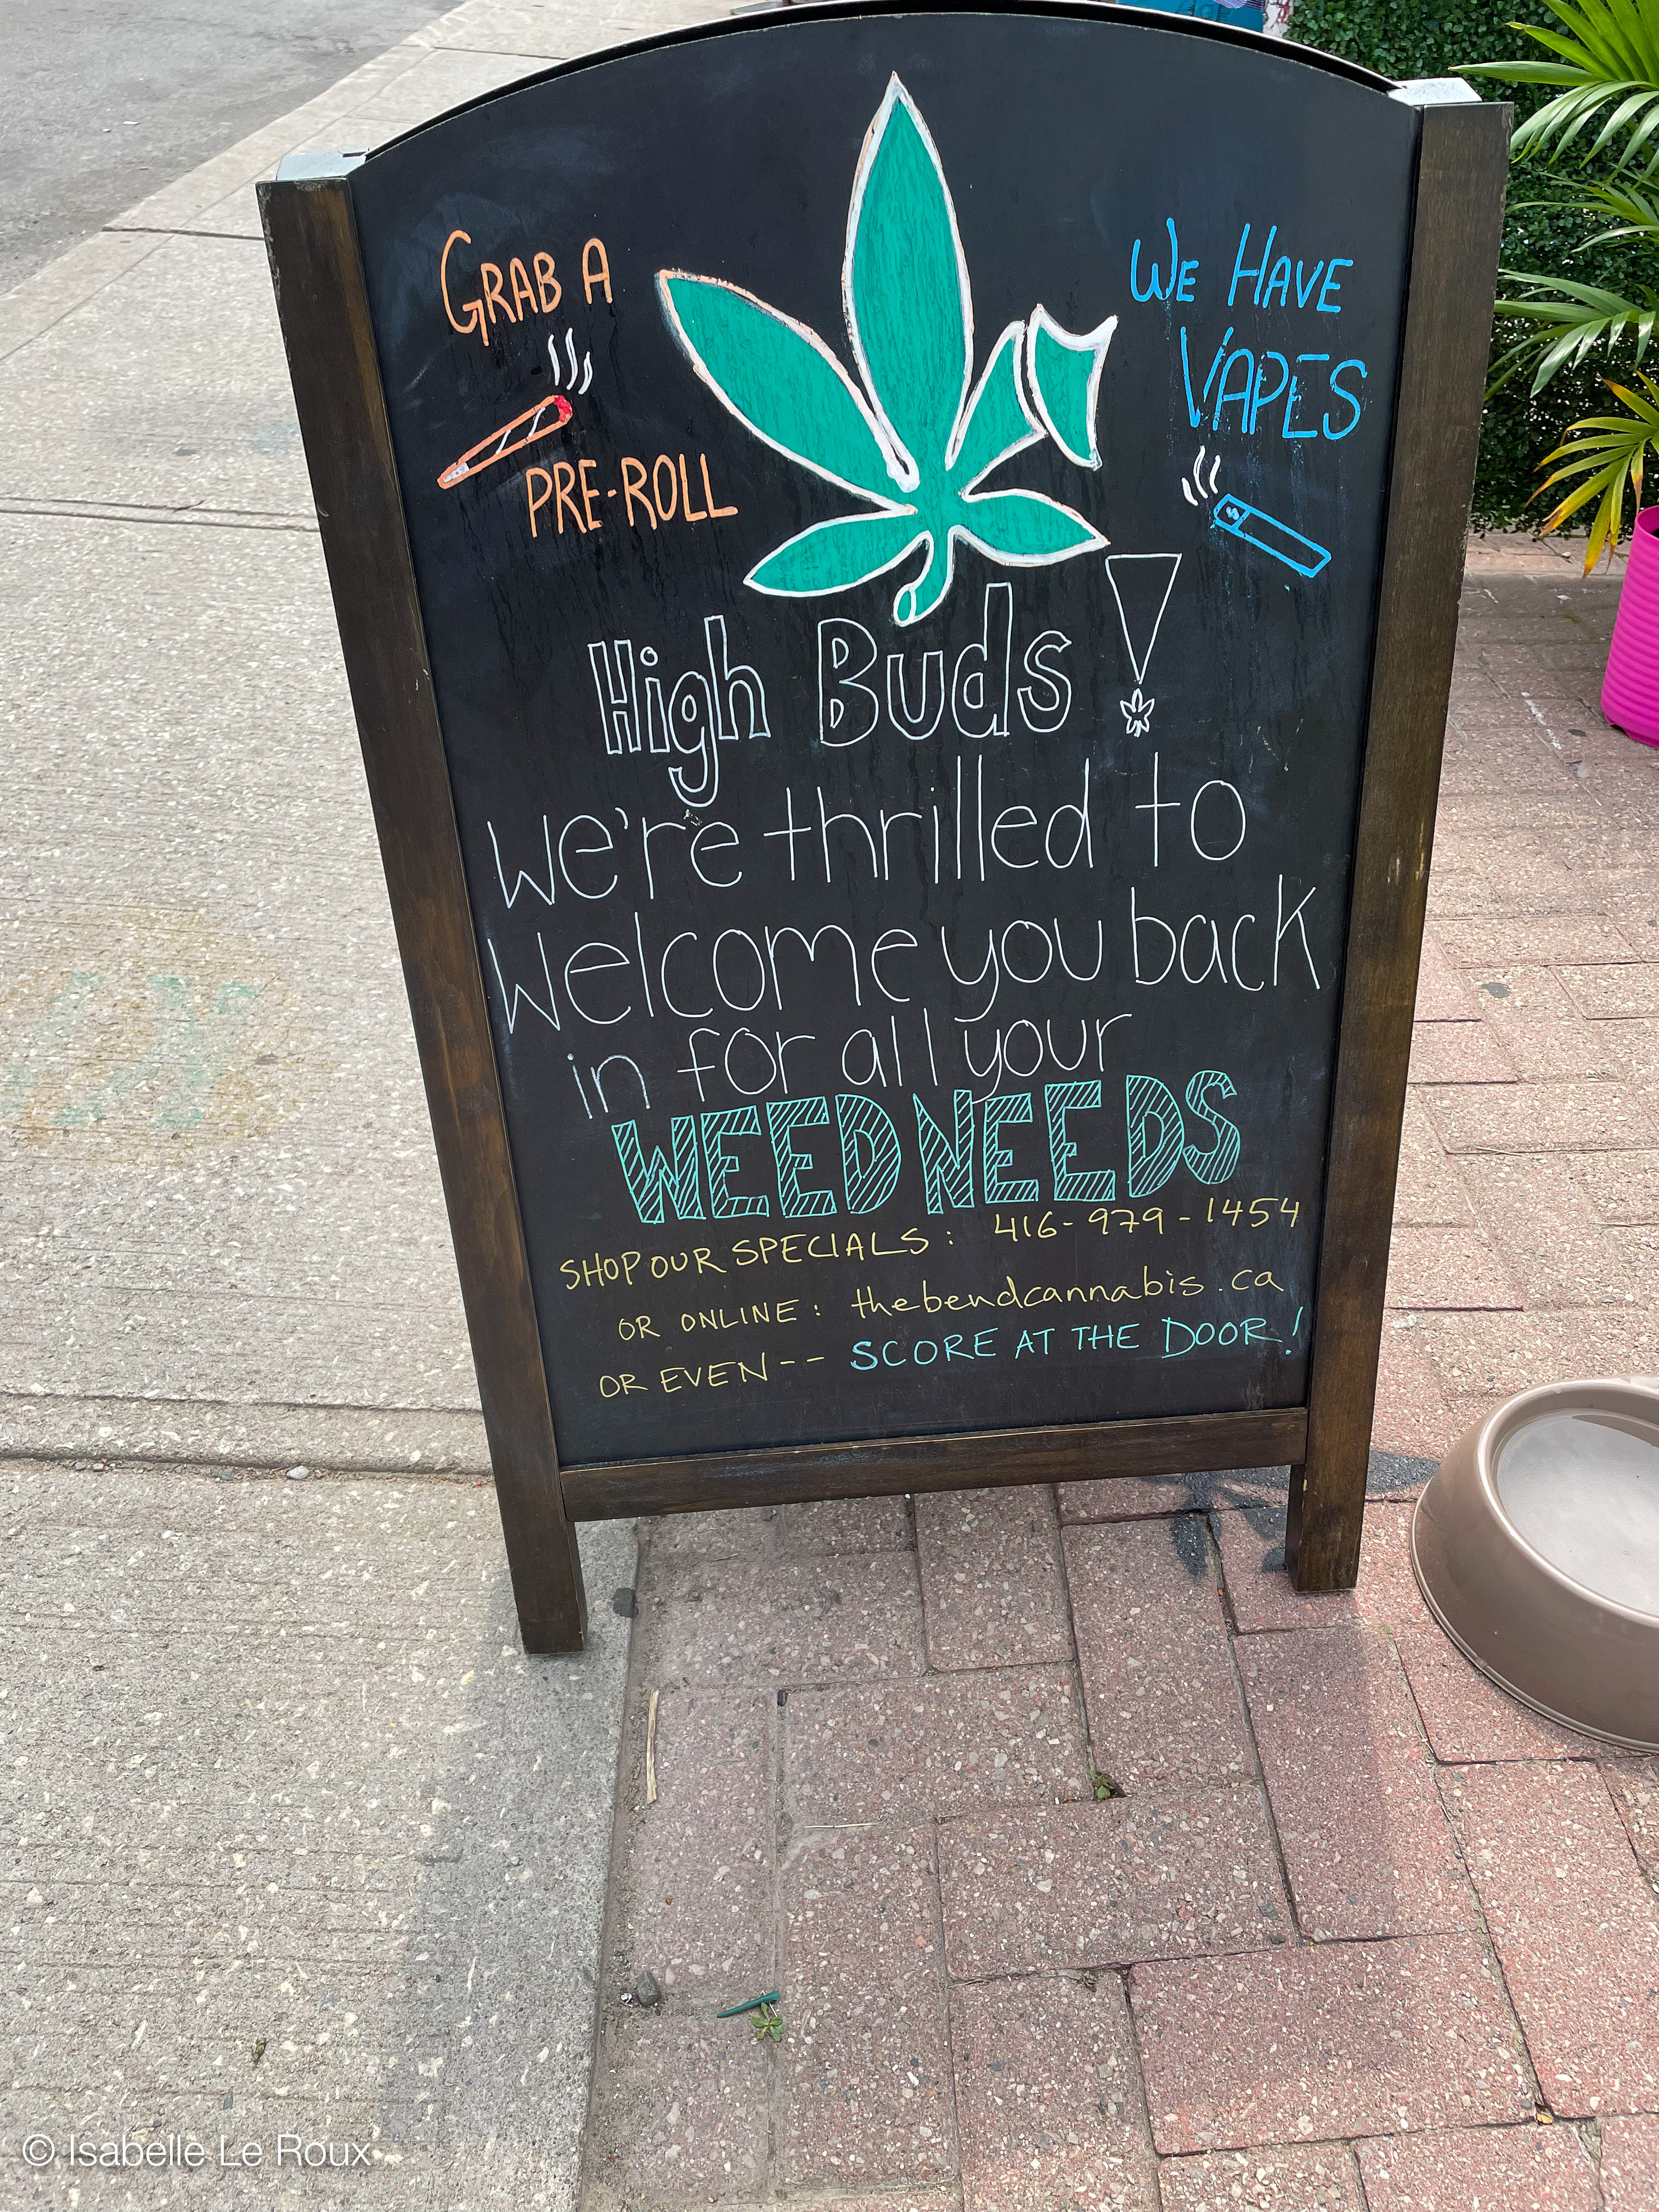 GRAB A
PRE-ROLL
WE HAVE
VAPES
High Buds!
We're thrilled to
welcome you back
in for all your
WEED NEEDS
SHOP OUR SPECIALS: 416-979-1454
OR ONLINE: thebendcannabis.ca
OR EVEN-- SCORE AT THE DOOR!
© Isabelle Le Roux